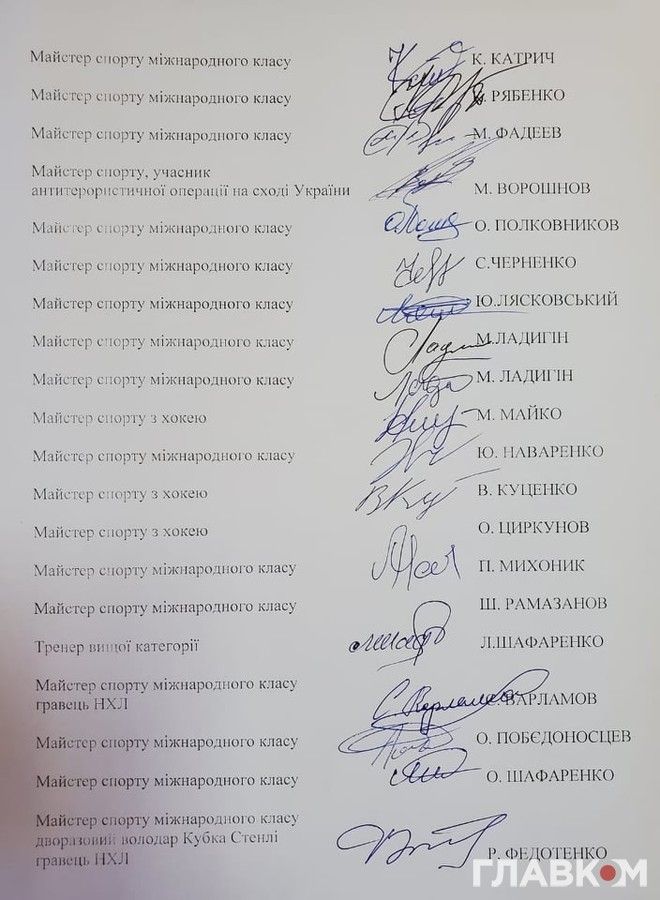 Майстер спорту міжнародного класу К. КАТРИЧ
Майстер спорту міжнародного класу РЯБЕНКО
Майстер спорту міжнародного класу М. ФАДЕЕВ
Майстер спорту, учасник
антитерористичної операції на сході України М. ВОРОШНОВ
Майстер спорту міжнародного класу О. ПОЛКОВНИКОВ
Майстер спорту міжнародного класу С.ЧЕРНЕНКО
Майстер спорту міжнародного класу Ю.ЛЯСКОВСЬКИЙ
Майстер спорту міжнародного класу М.ЛАДИГІН
Майстер спорту міжнародного класу М. ЛАДИГІН
Майстер спорту з хокею М. МАЙКО
Майстер спорту міжнародного класу Ю. НАВАРЕНКО
Майстер спорту з хокею В. КУЦЕНКО
Майстер спорту з хокею О. ЦИРКУНОВ
Майстер спорту міжнародного класу П. МИХОНИК
Майстер спорту міжнародного класу Ш. РАМАЗАНОВ
Тренер вищої категорії Л.ШАФАРЕНКО
Майстер спорту міжнародного класу
гравець НХЛ С. ВАРЛАМОВ
Майстер спорту міжнародного класу О. ПОБЄДОНОСЦЕВ
Майстер спорту міжнародного класу О. ШАФАРЕНКО
Майстер спорту міжнародного класу
дворазовий володар Кубка Стенлі
гравець НХЛ Р. ФЕДОТЕНКО
ГЛАВКОМ